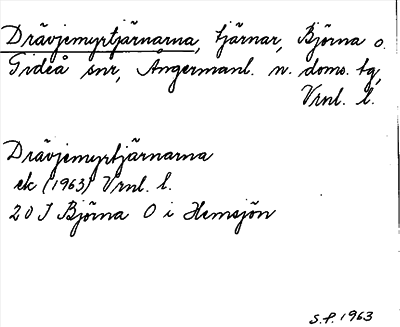 Drävjemyrtjärnarna, tjärnar, Björna o.
Gideå snr, Ångermanl. n. doms. tg,
Vrnl. l.
Drävjemyrtjärnarna
ek (1963) Vrnl. l.
20 J Björna O i Hemsjön
S.F. 1963